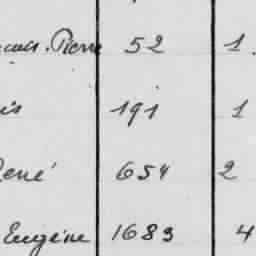 Pierre 52 1.
191 1
René 654 2
Eugène 1683 4